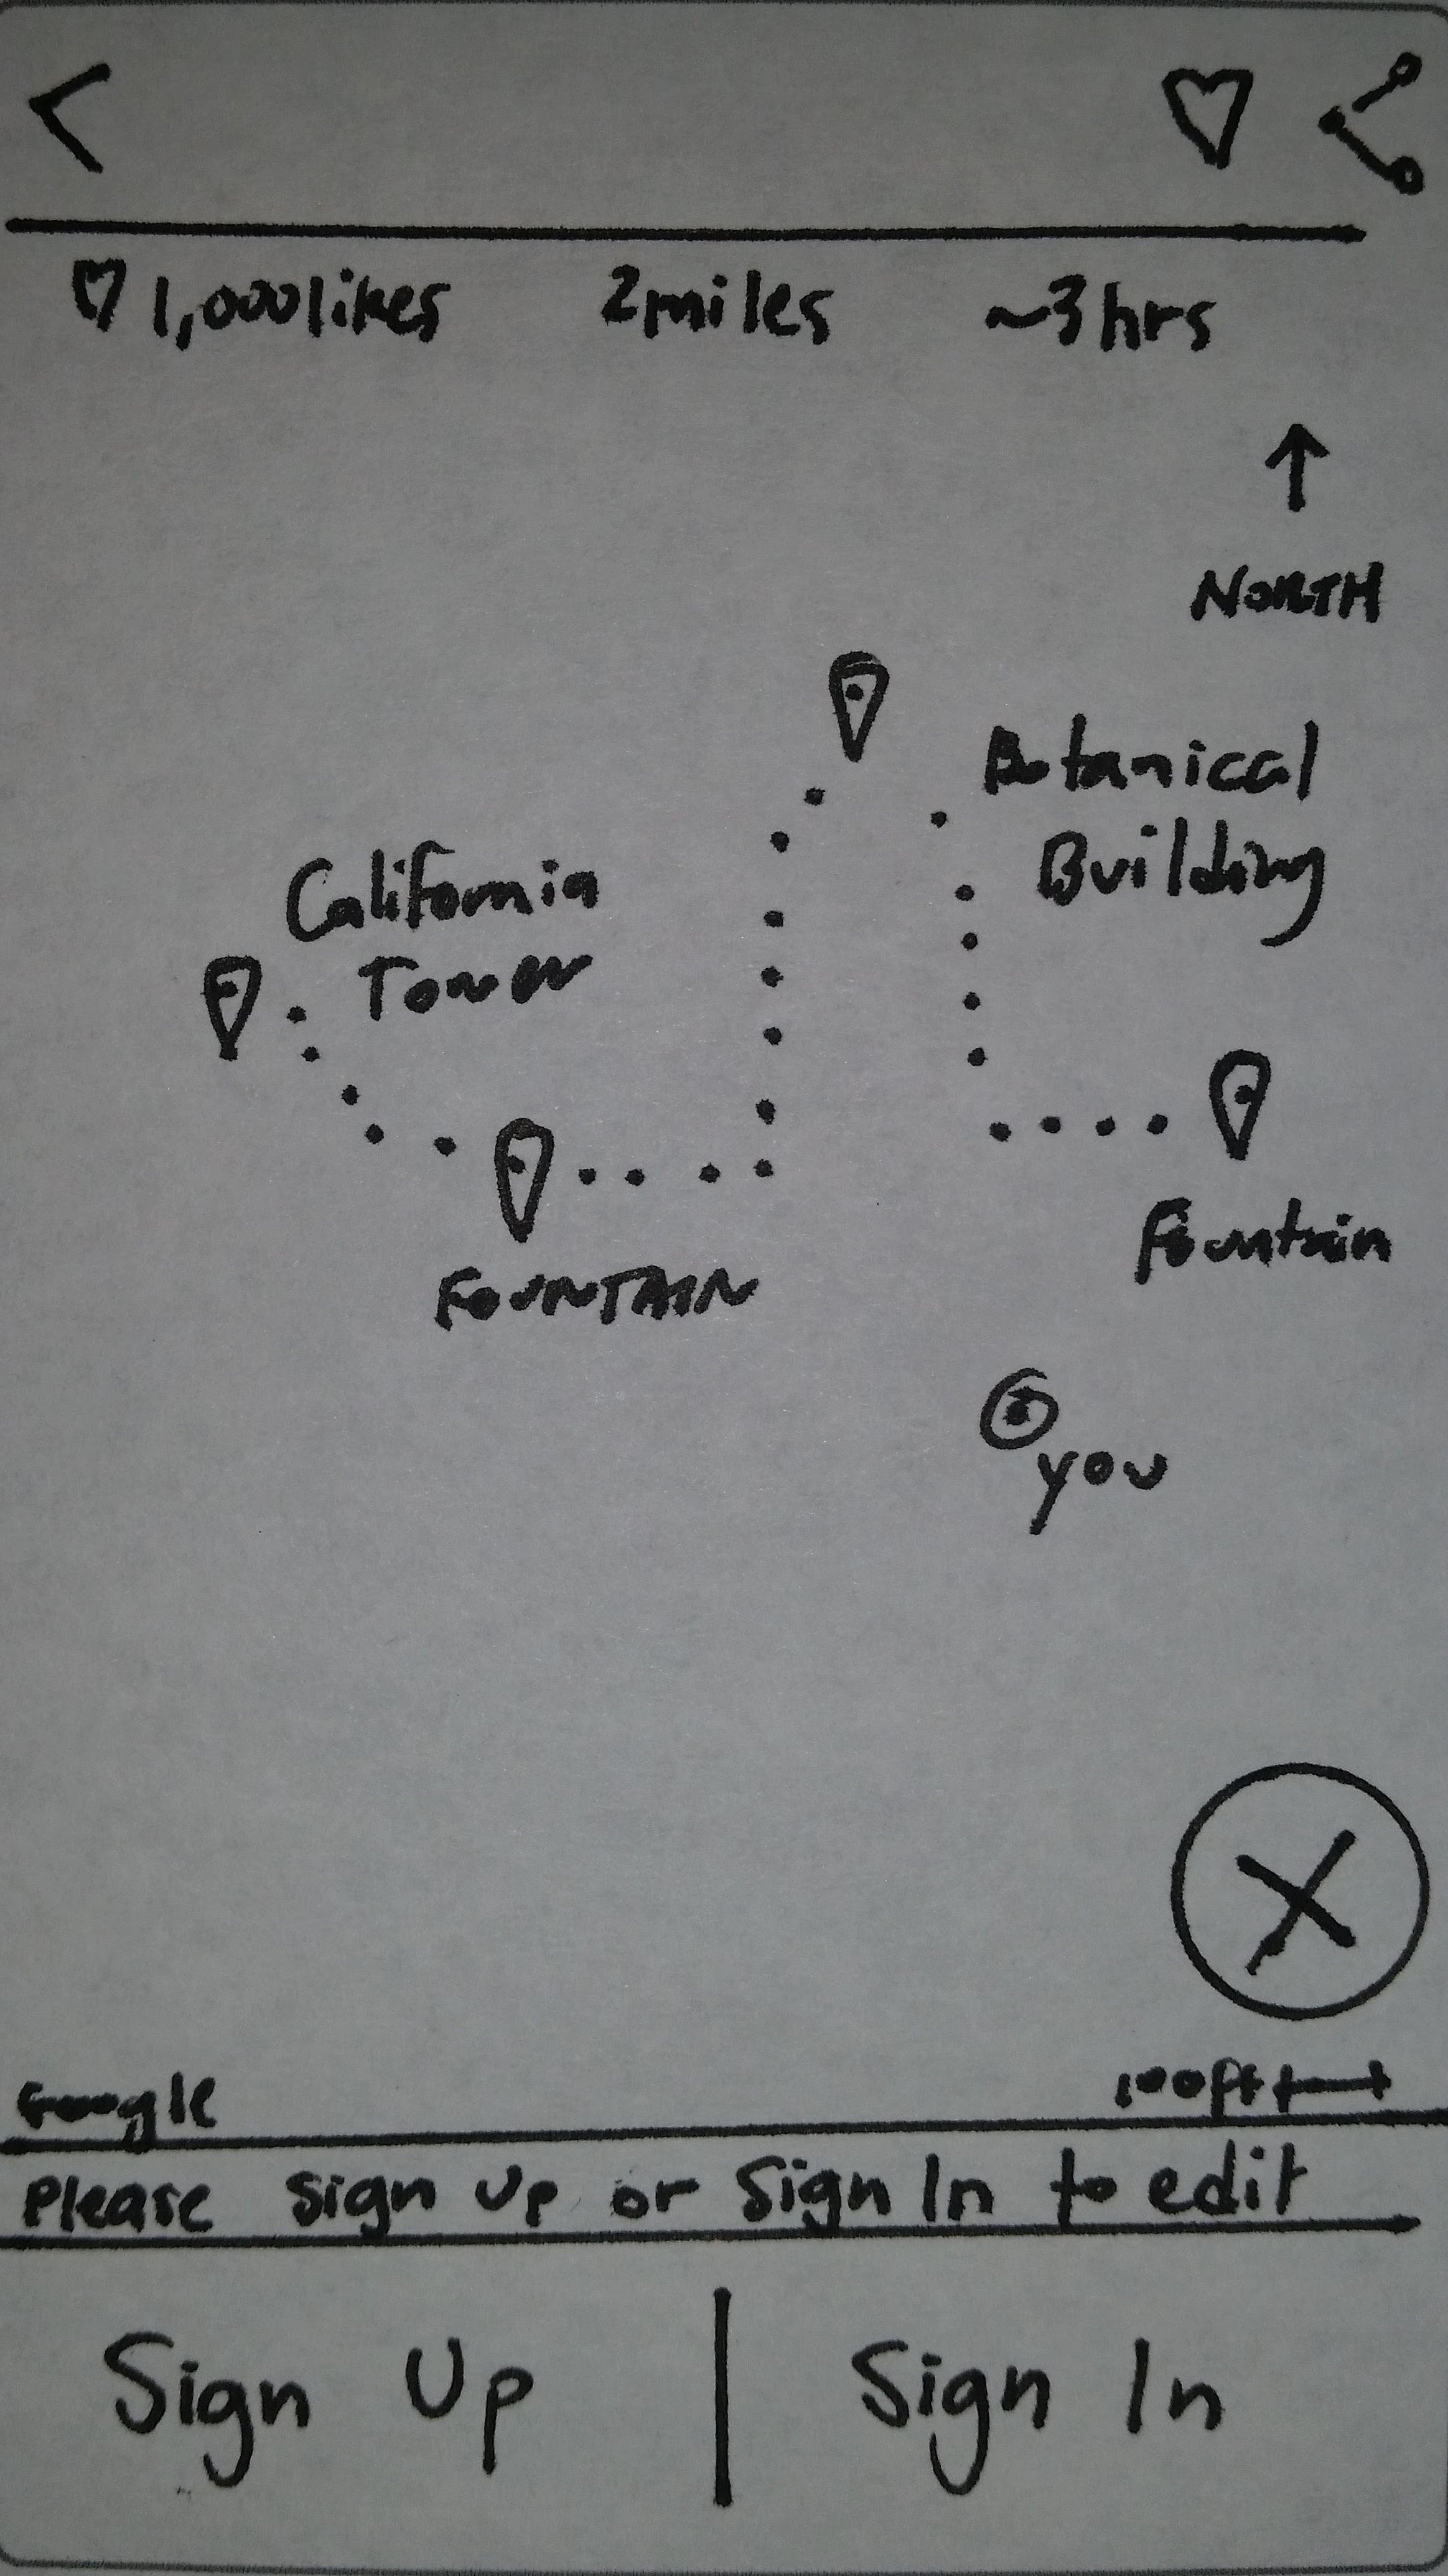 1,000 likes 2 miles ~3 hrs
NORTH
Botanical
Building
California
Tower
Fountain
FOUNTAIN
you
Google 100ft
Please Sign Up or Sign In to edit
Sign Up | Sign In